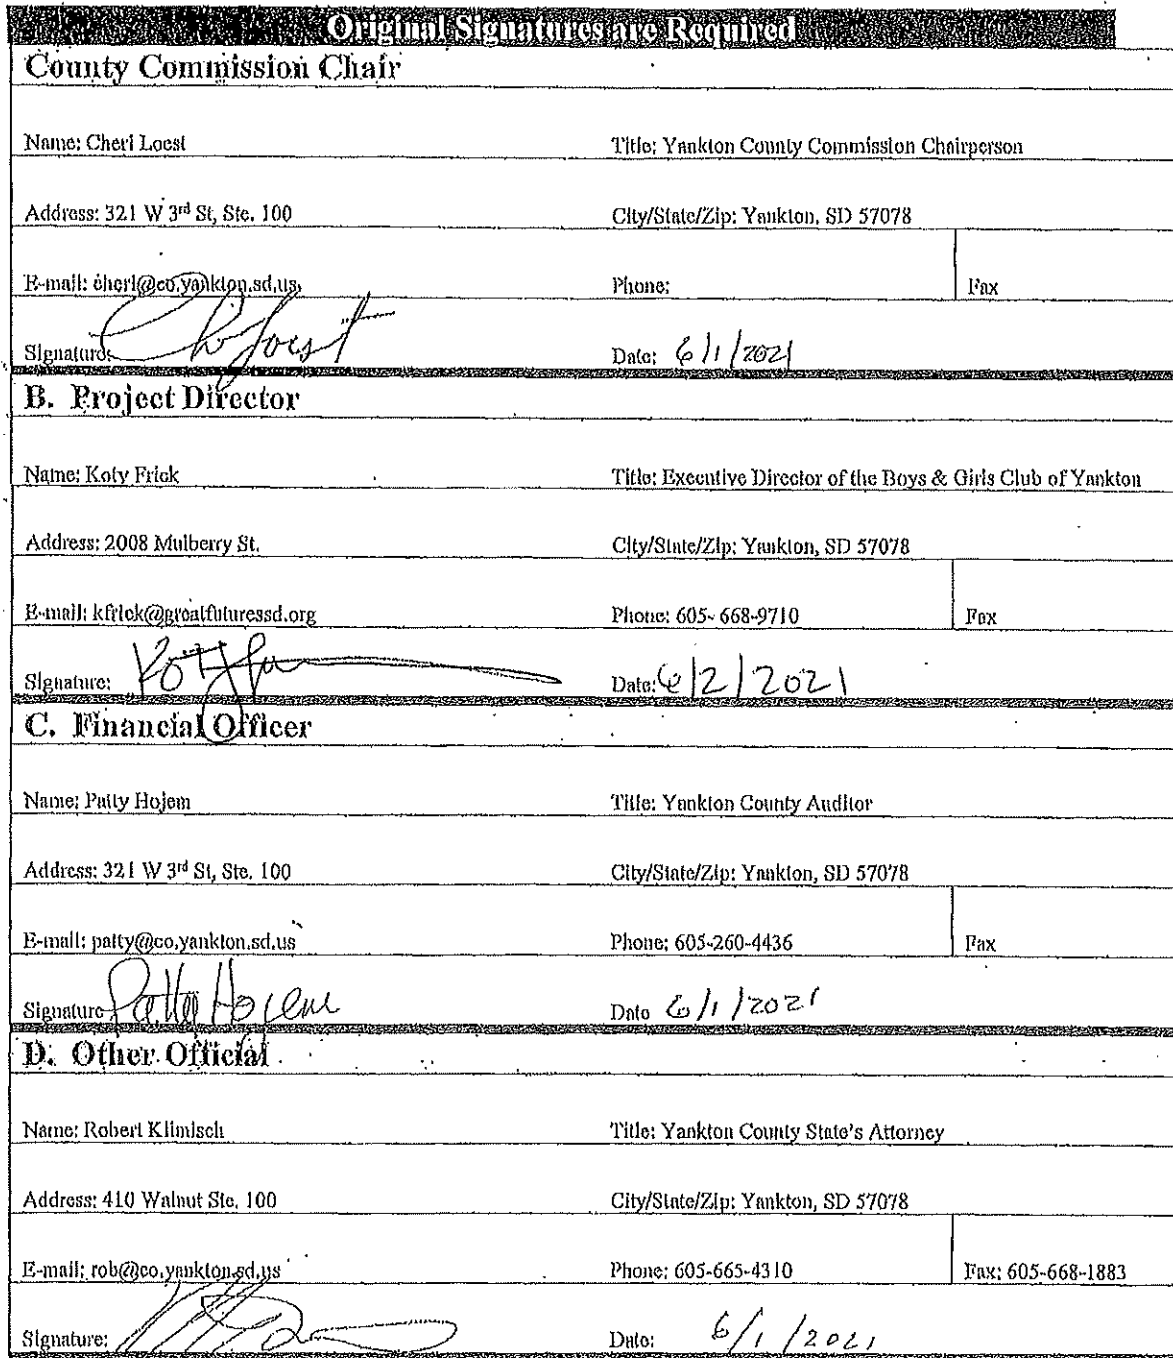 Original Signatures are Required
County Commission Chair
Name: Cheri Loest Title: Yankton County Commission Chairperson
Address: 321 W 3rd St, Ste. 100 City/State/Zip: Yankton, SD 57078
E-mail: cheri@co.yankton.sd.us Phone: Fax
Signature: Ch Loest Date: 6/1/2021
B. Project Director
Name: Koty Frick Title: Executive Director of the Boys & Girls Club of Yankton
Address: 2008 Mulberry St. City/State/Zip: Yankton, SD 57078
E-mail: kfrick@greatfuturessd.org Phone: 605-668-9710 Fax
Signature: Date: 6/2/2021
C. Financial Officer
Name: Patty Hojem Title: Yankton County Auditor
Address: 321 W 3rd St, Ste. 100 City/State/Zip: Yankton, SD 57078
E-mail: patty@co.yankton.sd.us Phone: 605-260-4436 Fax
Signature Patty Hojem Date 6/1/2021
D. Other Official
Name: Robert Klimisch Title: Yankton County State's Attorney
Address: 410 Walnut Ste. 100 City/State/Zip: Yankton, SD 57078
E-mail: rob@co.yankton.sd.us Phone: 605-665-4310 Fax: 605-668-1883
Signature: Date: 6/1/2021